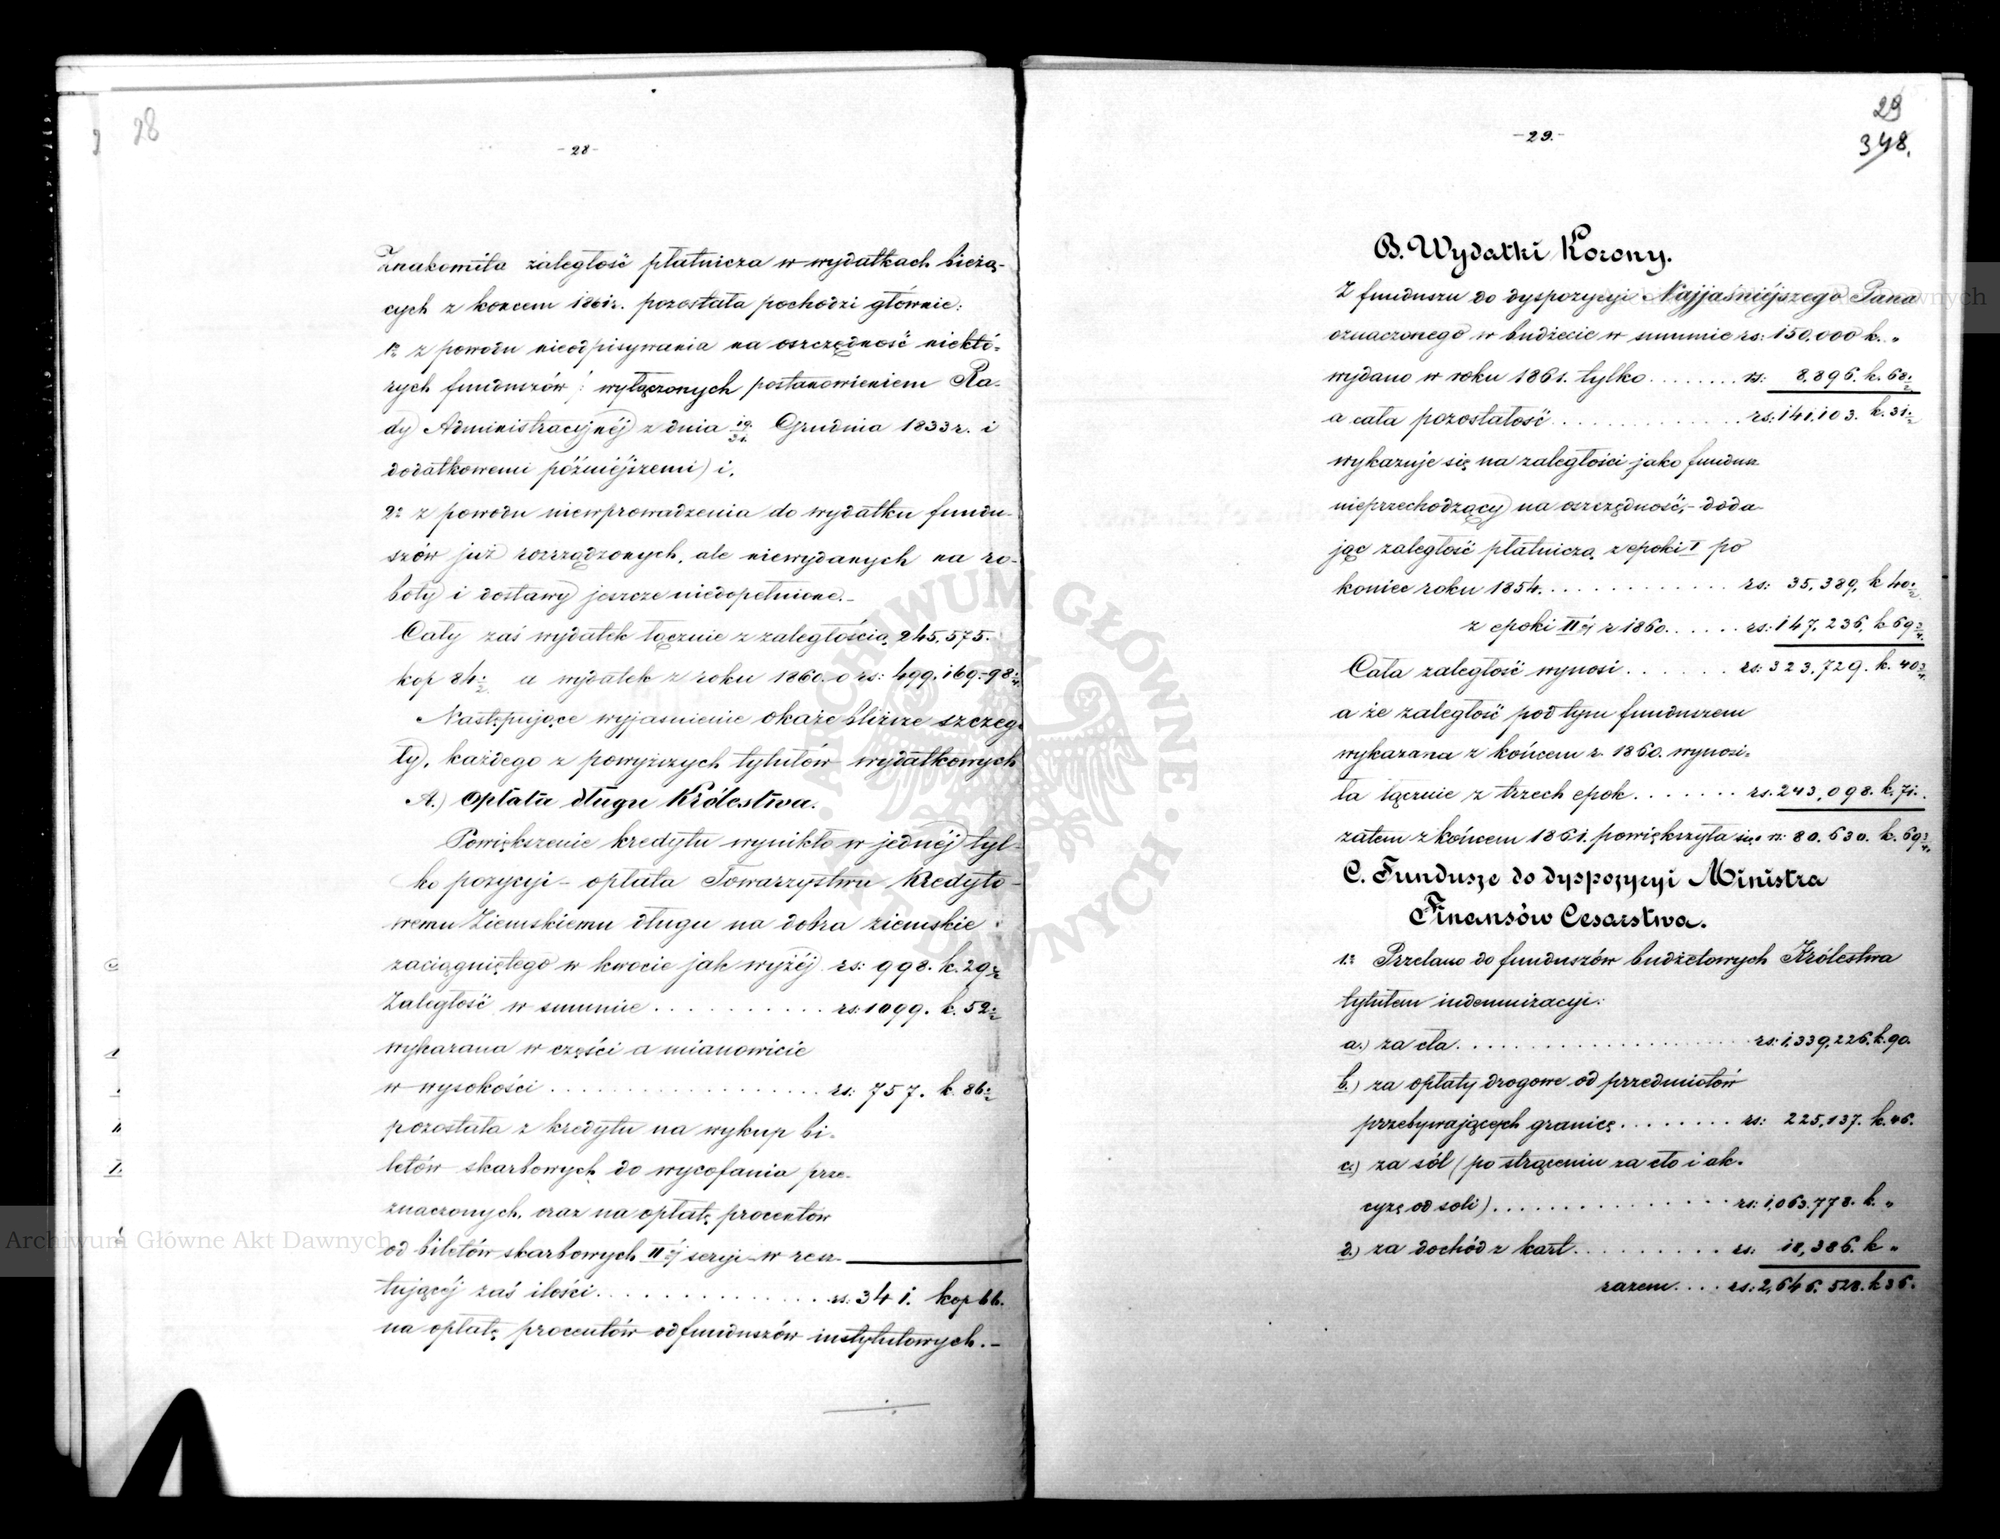 28
- 28 -
Znakomita zaległość płatnicza w wydatkach bieżą-
cych z końcem 1861 r. pozostała pochodzi głównie:
1º z powodu nieodpisywania na oszczędność niektó-
rych funduszów, wyłączonych postanowieniem Ra-
dy Administracyjnéj z dnia 19/31. Grudnia 1833 r. i
dodatkowemi późniéjszemi) i.
2º z powodu niewprowadzenia do wydatku fundu-
szów już rozrządzonych, ale niewydanych na ro-
boty i dostawy jeszcze niedopełnione.-
Cały zaś wydatek łącznie z zaległością 245,575.
kop 84½ a wydatek z roku 1860. o rs: 499.169.-98¾.
Następujące wyjaśnienie okaże bliższe szczegó
ły, każdego z powyższych tytułów wydatkowych
A.) Opłata długu Królestwa.
Powiększenie kredytu wynikło w jednéj tyl-
ko pozycyi - opłata Towarzystwu Kredyto-
wemu Ziemskiemu długu na dobra ziemskie
zaciągniętego w kwocie jak wyżéj rs: 998. k. 29½
Zaległość w summie . . . . . . . . . . rs: 1099. k. 52½
wykazana w części a mianowicie
w wysokości . . . . . . . . . . . . . . . . rs: 757. k. 86½
pozostała z kredytu na wykup bi-
letów skarbowych do wycofania prze-
znaczonych, oraz na opłatę procentów
od biletów skarbowych II éj seryi w resz-
tującéj zaś ilości . . . . . . . . . . . . . . rs: 341. kop 66.
na opłatę procentów od funduszów instytutowych.-
29
348.
- 29. -
B. Wydatki Korony.
Z funduszu do dyspozycyi Najjaśniéjszego Pana
oznaczonego w budżecie w summie rs: 150,000 k. „
wydano w roku 1861. tylko . . . . . . . . rs: 8,896. k. 68½
a cała pozostałość . . . . . . . . . . . . . rs: 141,103. k. 31½
wykazuje się na zaległości jako fundusz
nieprzechodzący na oszczędność,- doda-
jąc zaległość płatniczą z epoki I po
koniec roku 1854. . . . . . . . . . . . . . rs: 35,389, k 40½
z epoki II éj z 1860. . . . . . rs: 147,236, k 69¾.
Cała zaległość wynosi . . . . . . . . rs: 323,729. k. 40¾.
a że zaległość pod tym funduszem
wykazana z końcem r. 1860. wynosi-
ła łącznie z trzech epok . . . . . . . rs. 243,098. k. 71.
zatem z końcem 1861. powiększyła się o rs: 80.630. k. 69¾.
C. Fundusze do dyspozycyi Ministra
Finansów Cesarstwa.
1º Przelano do funduszów budżetowych Królestwa
tytułem indemnizacyi:
a.) za cła . . . . . . . . . . . . . . . . . . . . rs: 1,339,226. k. 90.
b.) za opłaty drogowe od przedmiotów
przebywających granicę . . . . . . . . . rs: 225,137. k. 46.
c.) za sól (po strąceniu za cło i ak-
cyzę od soli) . . . . . . . . . . . . . . . . rs: 1,063.778. k. „
d.) za dochód z kart . . . . . . . . . . rs: 18,386. k „
razem . . . . rs: 2,646.528. k 36.
Archiwum Główne Akt Dawnych
ARCHIWUM GŁÓWNE AKT DAWNYCH